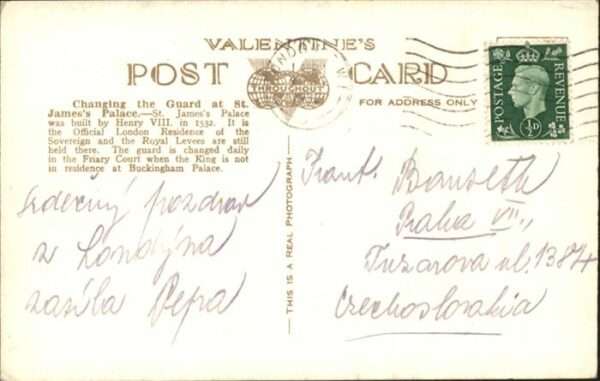 VALENTINE'S
POST CARD
THROUGHOUT
FOR ADDRESS ONLY
Changing the Guard at St.
James's Palace.—St. James's Palace
was built by Henry VIII. in 1532. It is
the Official London Residence of the
Sovereign and the Royal Levees are still
held there. The guard is changed daily
in the Friary Court when the King is not
in residence at Buckingham Palace.
THIS IS A REAL PHOTOGRAPH
POSTAGE REVENUE
½D
Srdečný pozdrav
z Londýna
zasílá Pepa
Frant.
Praha VII.,
ul. 1384
Czechoslovakia